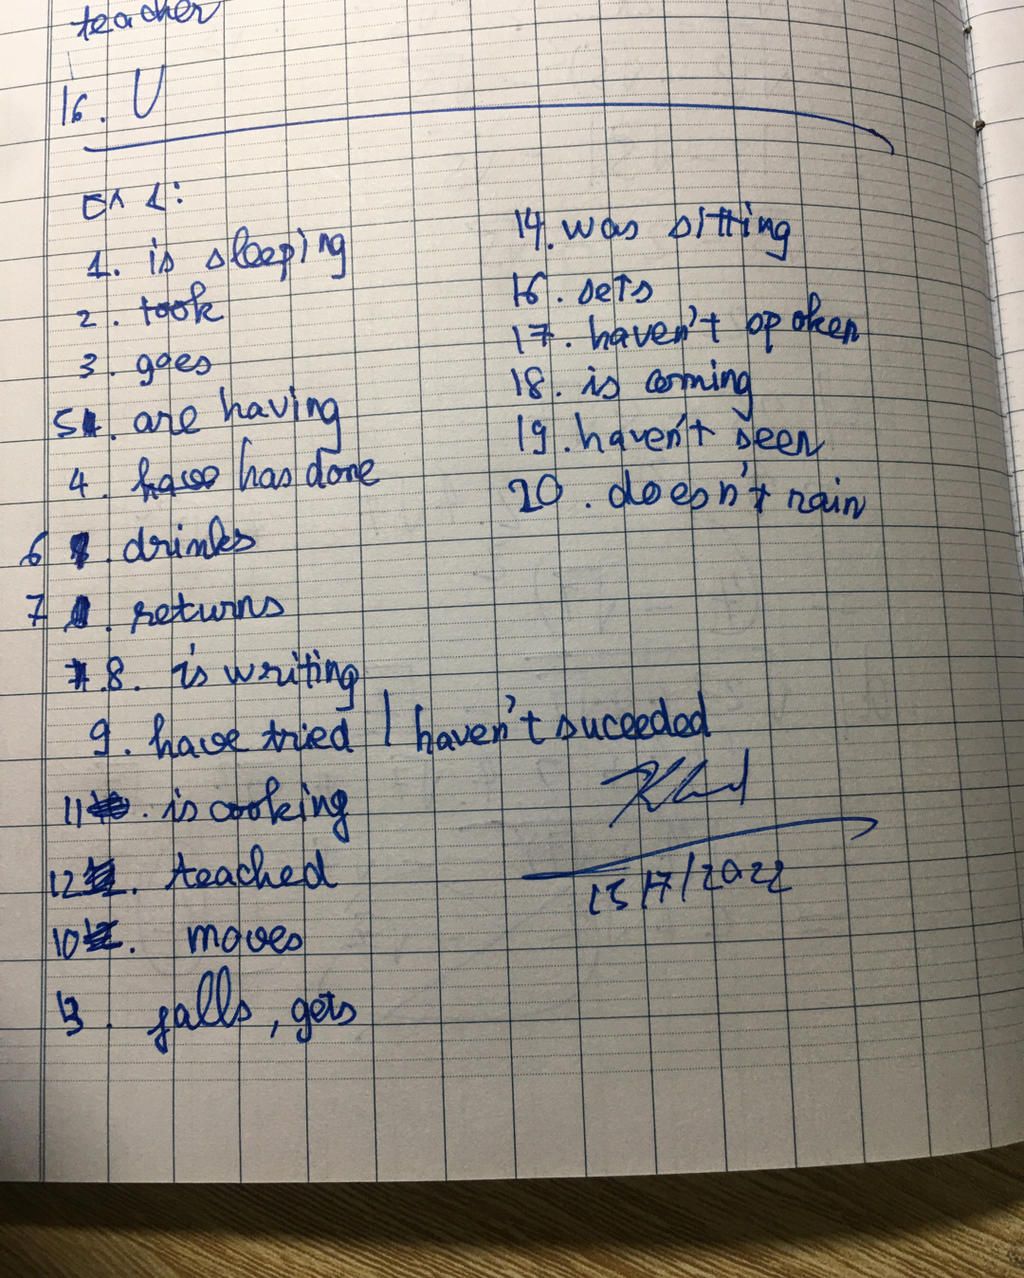 teacher
16. U
ex 2:
1. is sleeping
2. took
3. goes
5. are having
4. has done
6. drinks
7. returns
8. is writing
9. have tried / haven't suceeded
11. is cooking
12. teached
10. moves
13. falls, gets
14. was sitting
16. sets
17. haven't spoken
18. is coming
19. haven't seen
20. doesn't rain
15/7/2022